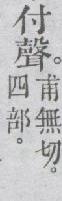 付聲。甫無切。
四部。